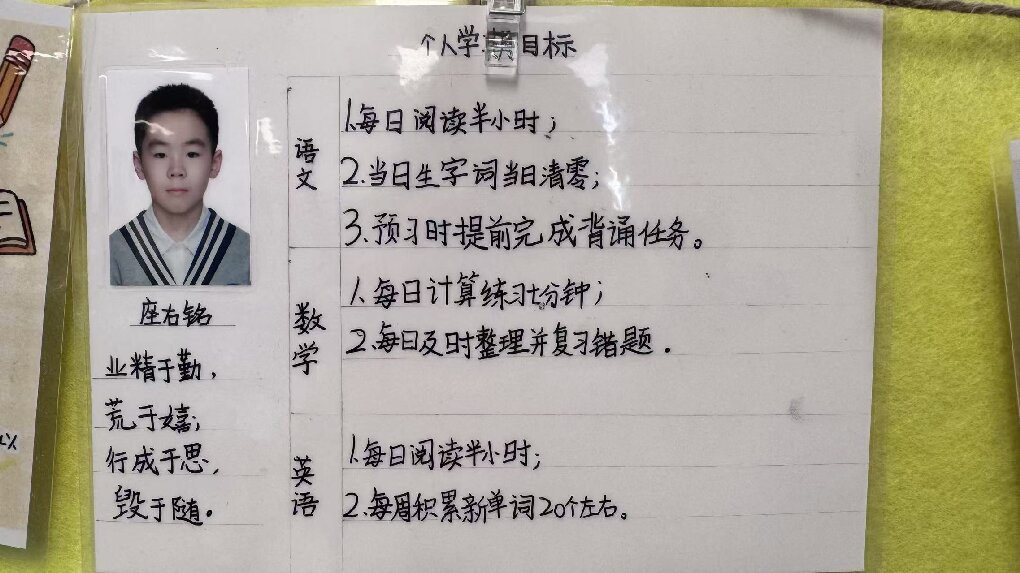 个人学期目标
语文
1.每日阅读半小时；
2.当日生字词当日清零；
3.预习时提前完成背诵任务。
数学
1.每日计算练习十分钟；
2.每日及时整理并复习错题.
英语
1.每日阅读半小时；
2.每周积累新单词20个左右。
座右铭
业精于勤，
荒于嬉；
行成于思，
毁于随。